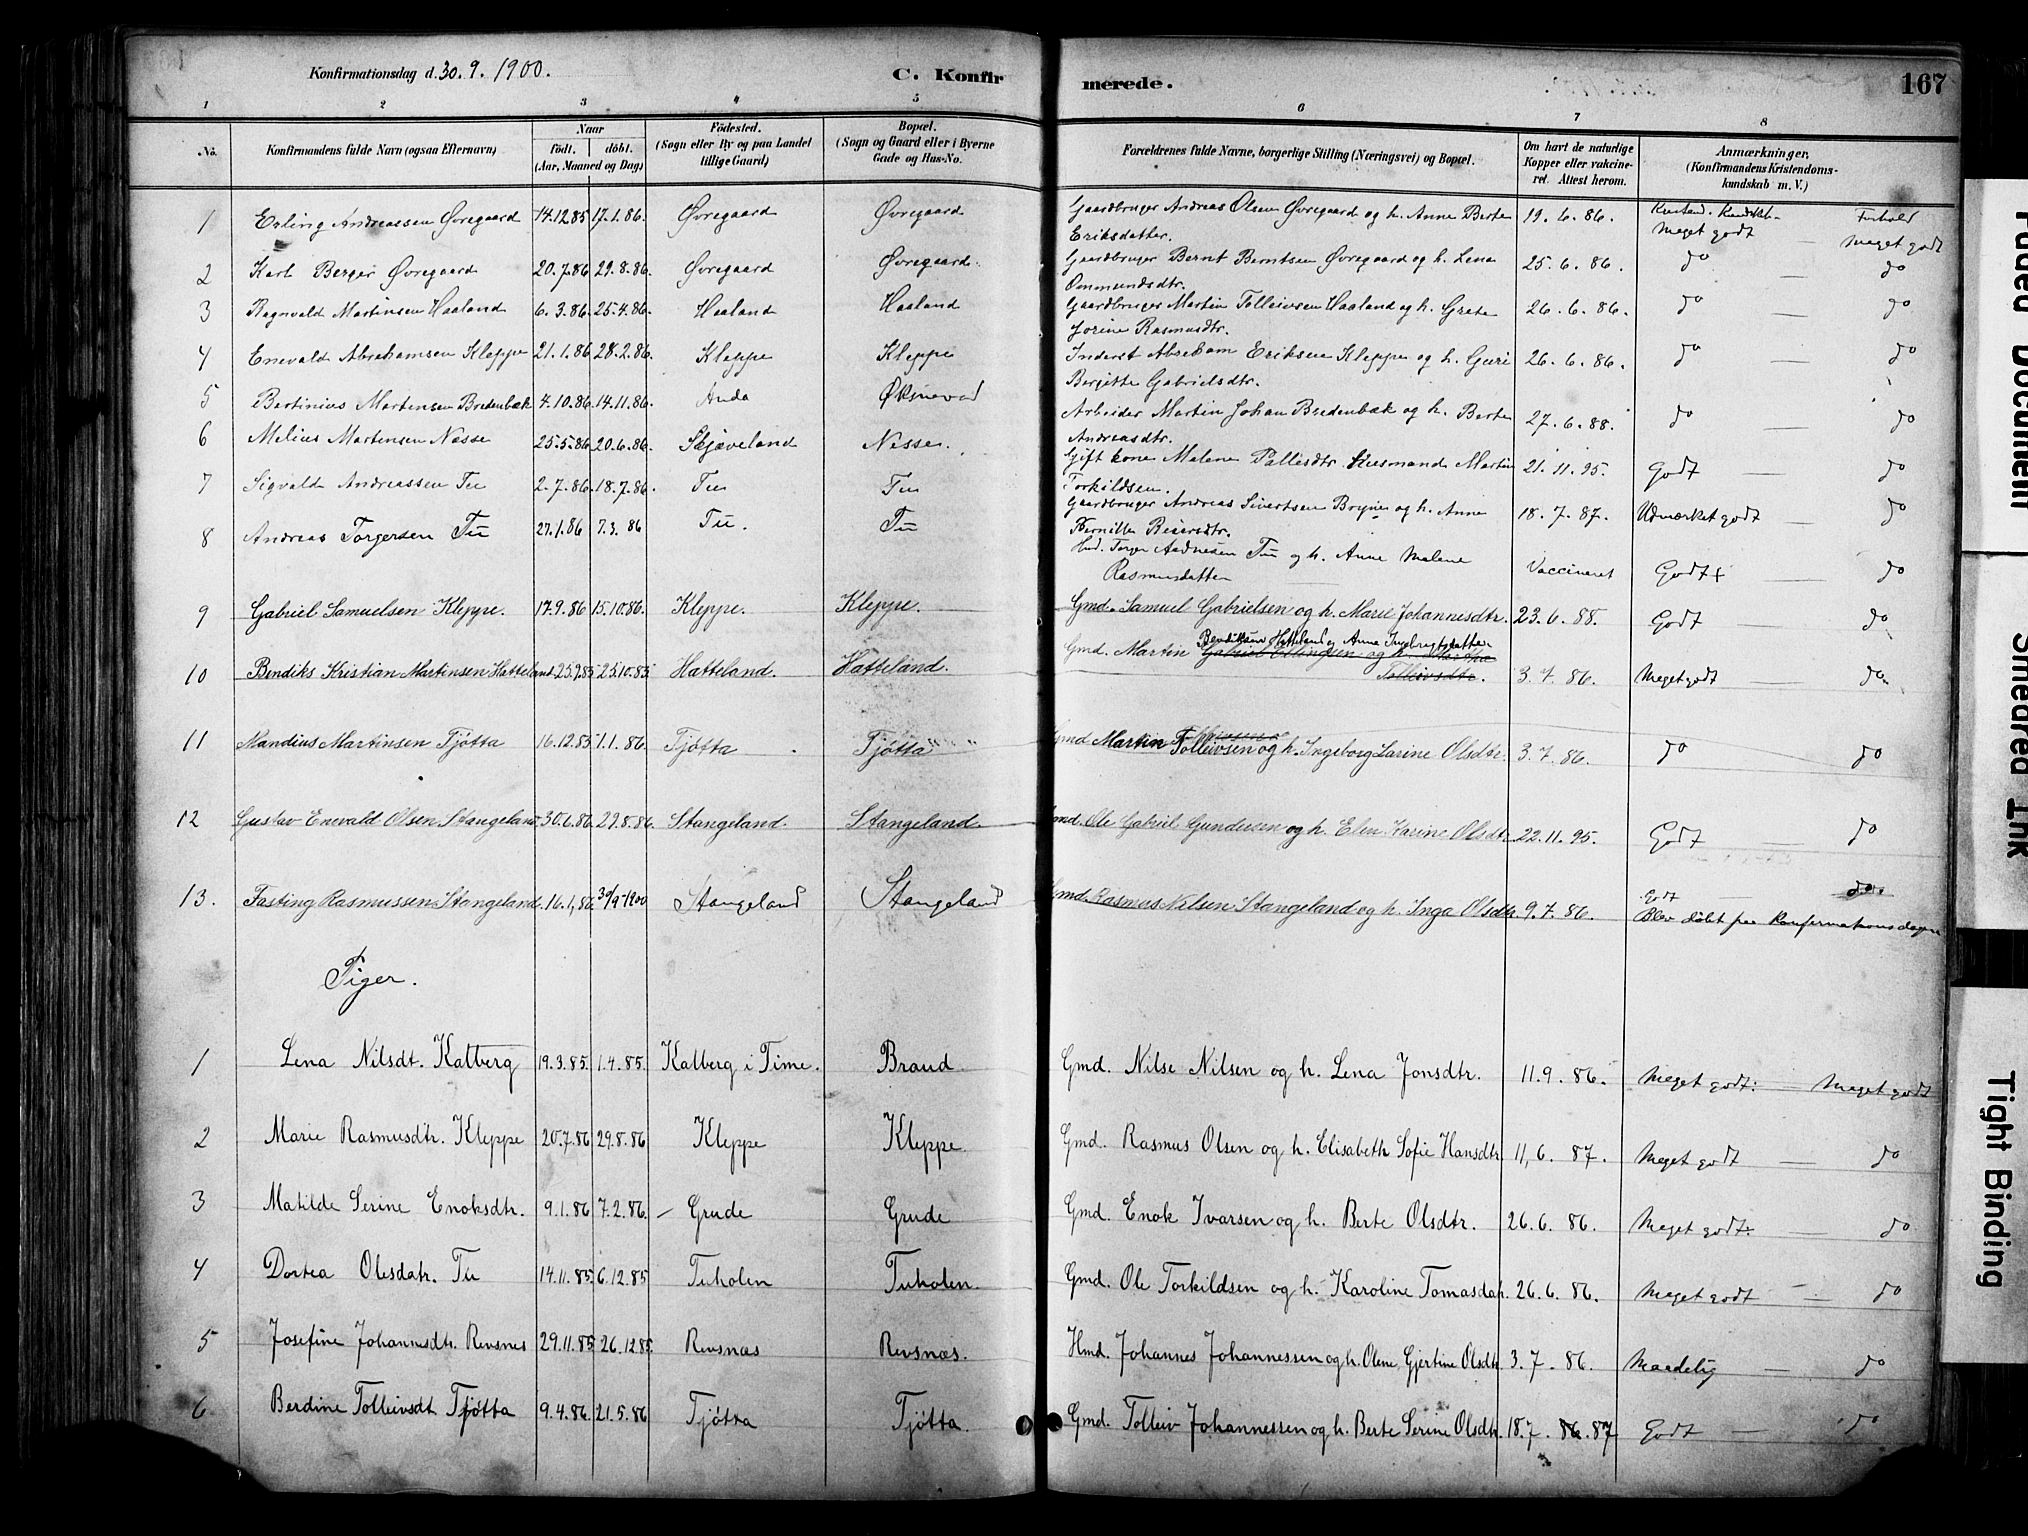 Konfirmationsdag d. 30. 9. 1900.
C. Konfirmerede.
167
1 2 3 4 5 6 7 8
No.
Konfirmandens fulde Navn (ogsaa Efternavn)
Naar
født. døbt.
(Aar, Maaned og Dag)
Fødested.
(Sogn eller By og paa Landet
tillige Gaard)
Bopæl.
(Sogn og Gaard eller i Byerne
Gade og Hus-No.
Forældrenes fulde Navne, borgerlige Stilling (Næringsvei) og Bopæl.
Om havt de naturlige
Kopper eller vakcine-
ret. Attest herom.
Anmærkninger,
(Konfirmandens Kristendoms-
kundskab m. V.)
1 Erling Andreassen Øvregaard 14.12.85 17.1.86. Øvregaard Øvregaard Gaardbruger Andreas Olsen Øvregaard og h. Anne Berte Eriksdatter. 19. 6. 86. Meget godt — Forhold meget godt
2 Karl Berger Øvregaard 20.7.86 29.8.86. Øvregaard Øvregaard. Gaardbruger Bernt Berntsen Øvregaard og h. Lena Ommundsdtr. 25. 6. 86. do — do
3 Ragnvald Martinsen Haaland 6.3.86. 25.4.86. Haaland Haaland Gaardbruger Martin Tolleivsen Haaland og h. Grete Jorine Rasmusdtr. 26. 6. 86. do — do
4 Enevald Abrahamsen Kleppe 21.1.86 28.2.86. Kleppe Kleppe Inderst Abraham Eriksen Kleppe og h. Guri Bergitte Gabrielsdtr. 26. 6. 86. do — do
5 Bertinius Martensen Bredenbæk 4.10.86 14.11.86. Anda Øksnevad Arbeider Martin Johan Bredenbæk og h. Berte Andreasdtr. 27. 6. 88. do do
6 Melius Martensen Næsse 25.5.86 20.6.86. Skjæveland Nesse. Gift kone Malene Pallesdtr. Husmand Martin Torkildsen. 21. 11. 95. Godt — do
7 Sigvald Andreassen Tu 2.7.86. 18.7.86. Tu Tu Gaardbruger Andreas Sivertsen Bryne og h. Anne Pernille Beiersdtr. 18. 7. 87. Udmærket godt — do
8 Andreas Torgersen Tu 27.1.86 7.3.86 Tu. Tu Hmd. Torger Aadnesen Tu og h. Anne Malene Rasmusdatter Vaccineret Godt + — do
9 Gabriel Samuelsen Kleppe. 17.9.86 15.10.86. Kleppe. Kleppe. Gmd. Samuel Gabrielsen og h. Marie Johannesdtr. 23. 6. 88. Godt — do
10 Bendiks Kristian Martinsen Hatteland 25.9.85 25.10.85 Hatteland. Hatteland. Gmd. Martin Bendiksen Hatteland og Anne Ingebrigtsdatter Gabriel Ellingsen og h. Tolleivsdtr. 3. 7. 86. Meget godt — do
11 Mandius Martinsen Tjøtta 16.12.85 1.1.86. Tjøtta Tjøtta Gmd Martin Tolleivsen og h. Ingeborg Larine Olsdtr. 3. 7. 86. do do
12 Gustav Enevald Olsen Stangeland 30.6.86 29.8.86. Stangeland. Stangeland. Gmd. Ole Gabriel Gundersen og h. Elen Karine Olsdtr 22. 11. 95. Godt — do
13. Fasting Rasmussen Stangeland. 16.1.86 30/9-1900 Stangeland Stangeland Gmd. Rasmus Nilsen Stangeland og h. Inga Olsdtr 9. 7. 86. Godt — do.
Blev døbt paa Konfirmationsdagen
Piger.
1 Lena Nilsdt. Kalberg 19.3.85. 1.4.85. Kalberg i Time. Braud. Gmd. Nilse Nilsen og h. Lena Jonsdtr. 11. 9. 86. Meget godt. — Meget godt
2 Marie Rasmusdtr. Kleppe 20.7.86 29.8.86 Kleppe Kleppe. Gmd. Rasmus Olsen og h. Elisabeth Sofie Hansdtr. 11. 6. 87. Meget godt — do
3 Matilde Serine Enoksdtr. 9.1.86 7.2.86. Grude Grude Gmd. Enok Ivarsen og h. Berte Olsdtr. 26. 6. 86. Meget godt. — do
4 Dortea Olesdatr. Tu 14.11.85 6.12.85 Tuholen Tuholen. Gmd. Ole Torkildsen og h. Karoline Tomasdatr. 26. 6. 86. Meget godt — do
5 Josefine Johannesdtr. Revsnes 29.11.85 26.12.85. Revsnæs Revsnæs. Hmd. Johannes Johannessen og h. Olene Gjertine Olsdtr. 3. 7. 86. Maadelig — do
6 Berdine Tolleivsdt Tjøtta 9.4.86 21.5.86 Tjøtta Tjøtta. Gmd. Tolleiv Johannessen og h. Berte Serine Olsdtr. 18. 7. 86. 87 Godt — do
Faded Document
Smeared Ink
Tight Binding